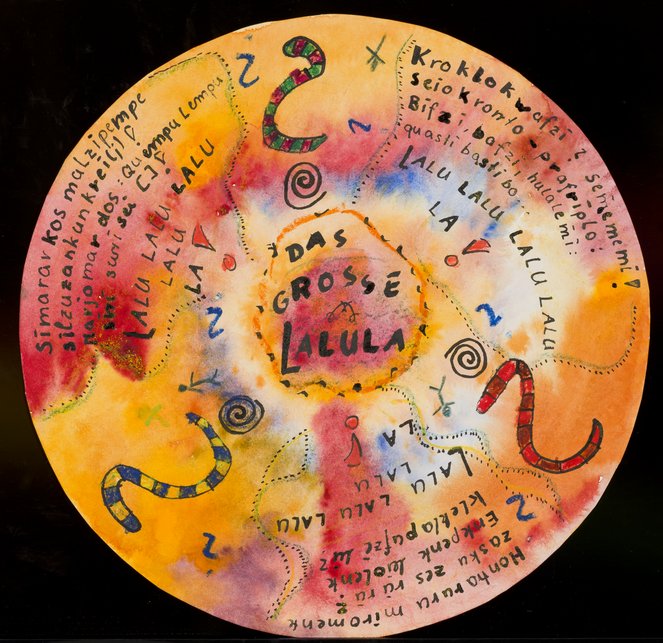 DAS
GROSSE
LALULA
Kroklokwafzi ? Semememi!
Seiokronto - prafriplo:
Bifzi, bafzi; hulalemi:
quasti basti bo...
LALU LALU LALU LALU
LA
Hontaruru miromenk
zasku zes rü rü ?
Entepenk leiolenk
klekwapufzi lü ?
LALU LALU LALU LALU
LA
Simarar kos malzipempe
silzuzankunkrei(;)!
Marjomar dos: Quempu Lempu
Siri Suri Sei []!
LALU LALU LALU LALU
LA